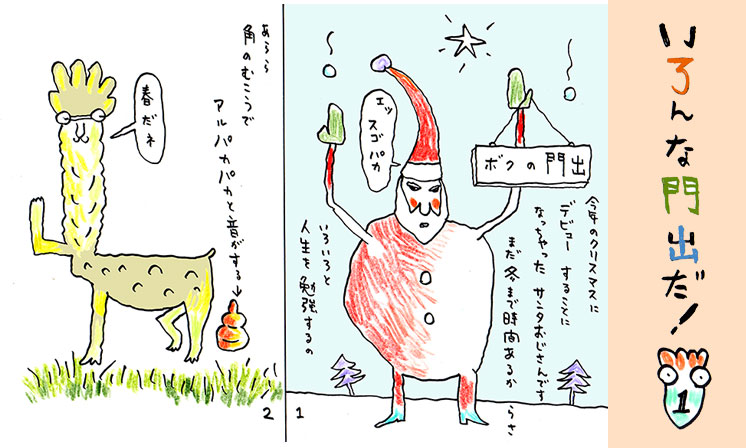 いろんな門出だ！
1
ボクの門出
今年のクリスマスに
デビューすることに
なっちゃったサンタおじさんです
まだ冬まで時間あるからさ
エッ
スゴパカ
いろいろと
人生を勉強するの
1
あらら
角のむこうで
アルパカパカと音がする→
春だネ
2